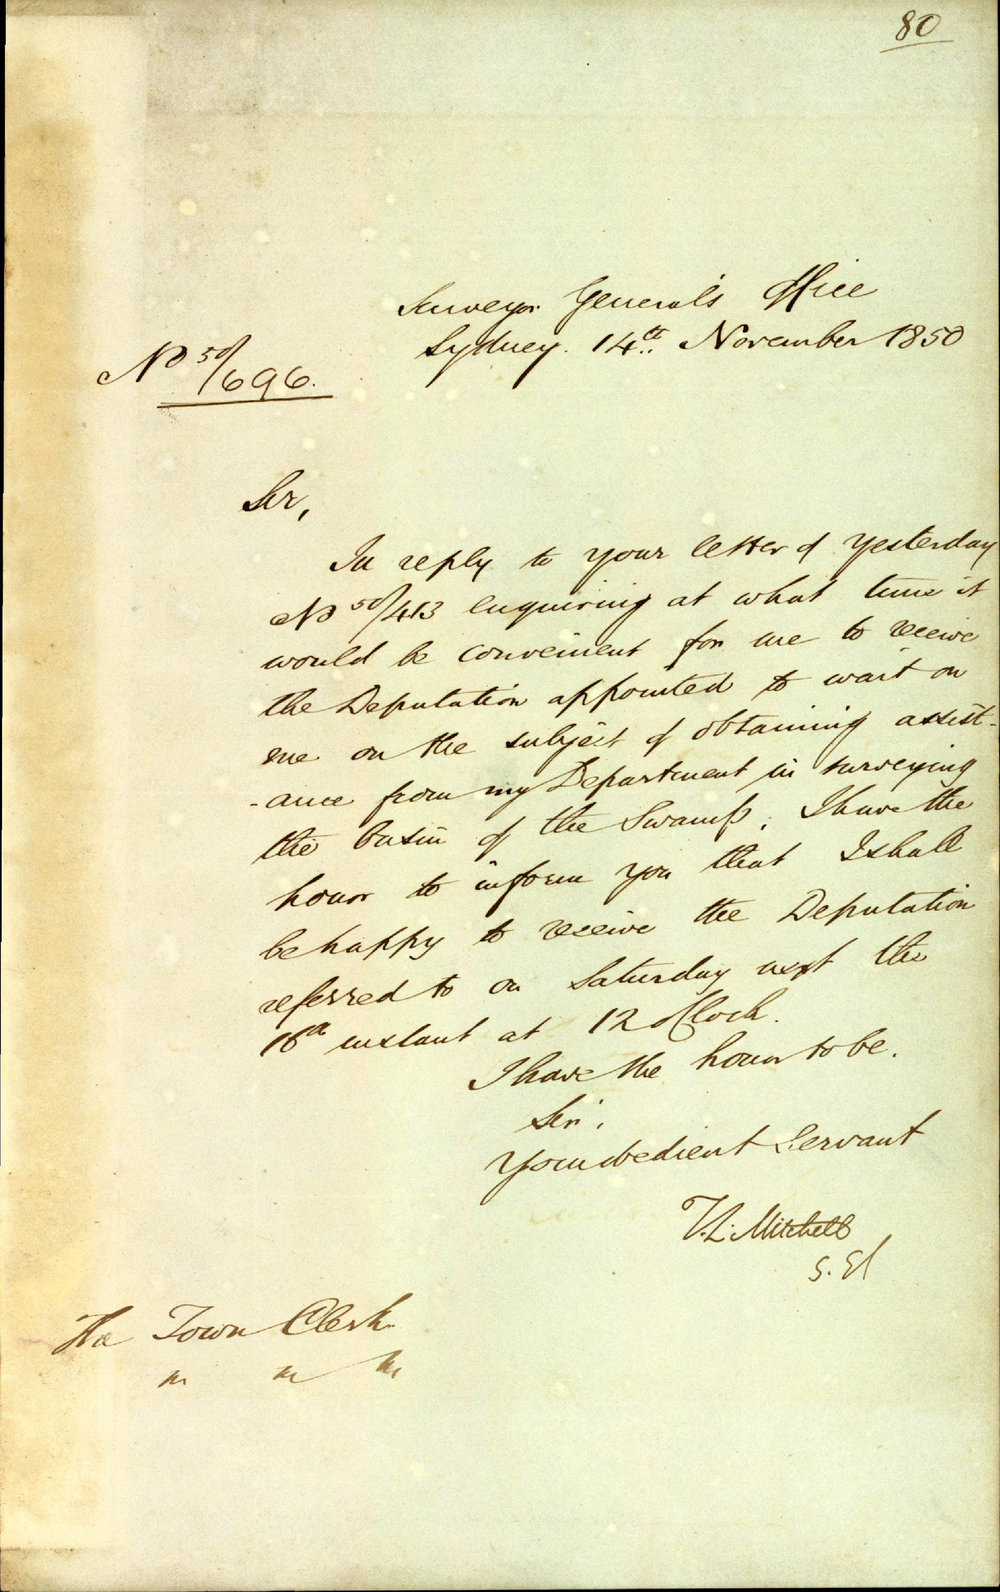 80
Surveyor General's Office
Sydney. 14th November 1850
No 50/696.
Sir,
In reply to your letter of yesterday
No 50/413 enquiring at what time it
would be convenient for me to receive
the Deputation appointed to wait on
me on the subject of obtaining assist-
-ance from my Department in surveying
the basin of the Swamp, I have the
honor to inform you that I shall
be happy to receive the Deputation
referred to on Saturday next the
16th instant at 12 oClock.
I have the honor to be.
Sir.
Your obedient Servant
T.L. Mitchell
S. G
The Town Clerk